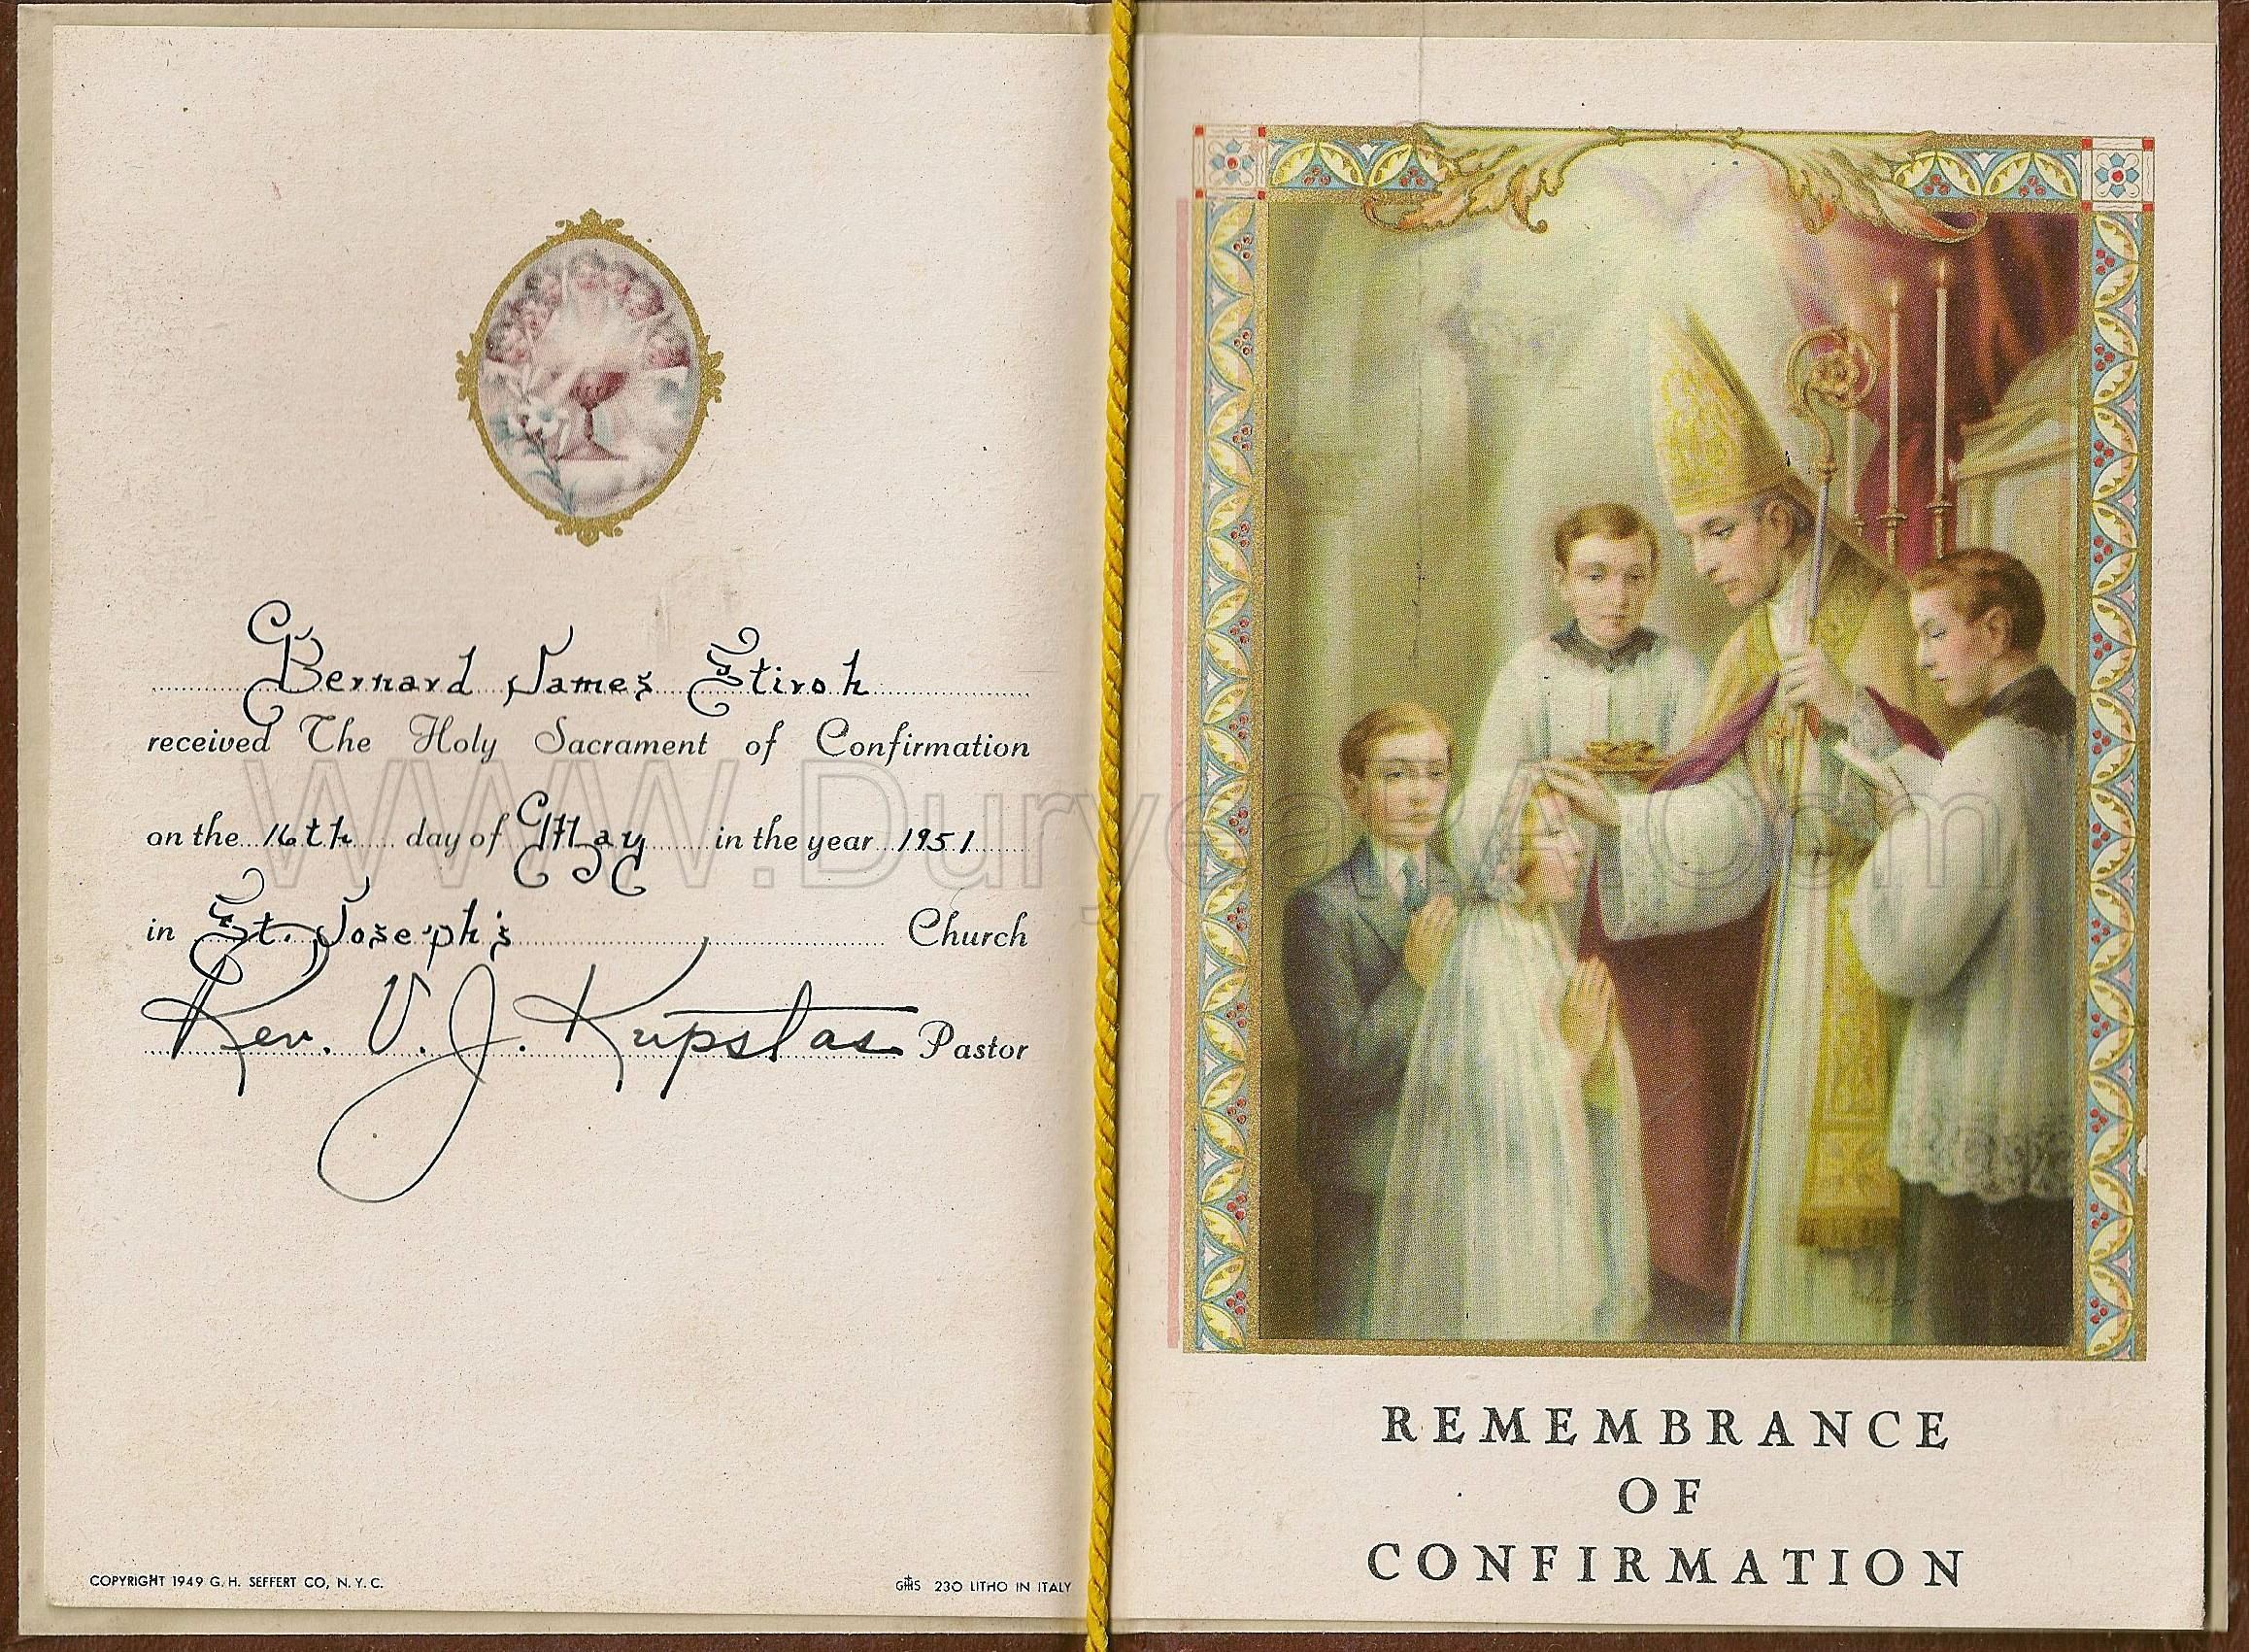 Bernard James Stiroh
received The Holy Sacrament of Confirmation
on the 16th day of May in the year 1951
in St. Joseph's Church
Rev. V. J. Kupstas Pastor
COPYRIGHT 1949 G. H. SEFFERT CO, N. Y. C.
GHS 230 LITHO IN ITALY
REMEMBRANCE
OF
CONFIRMATION
WWW.DuryeaPA.Com